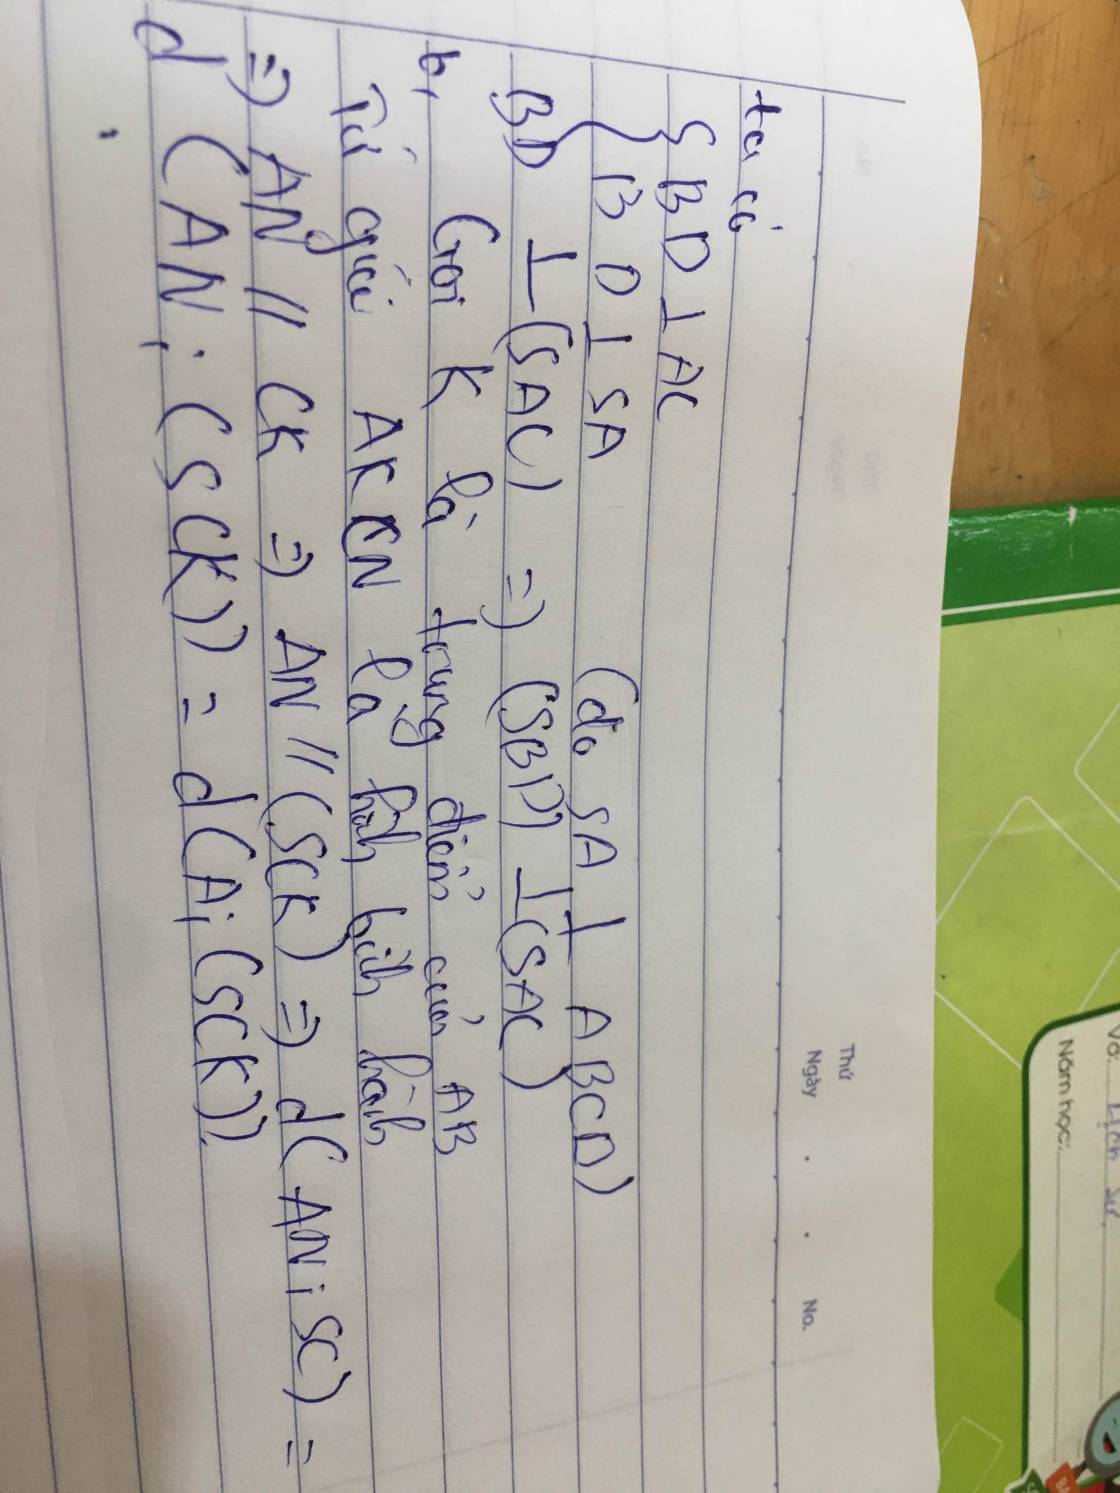 Thứ
Ngày . . No.
ta có
{ BD ⊥ AC
{ BD ⊥ SA (do SA ⊥ ABCD)
BD ⊥ (SAC) => (SBD) ⊥ (SAC)
b, Gọi K là trung điểm của AB
Tứ giác AKCN là hình bình hành
=> AN // CK => AN // (SCK) => d(AN; SC) =
d (AN; (SCK)) = d(A; (SCK)).
Vở: Lịch sử
Năm học: